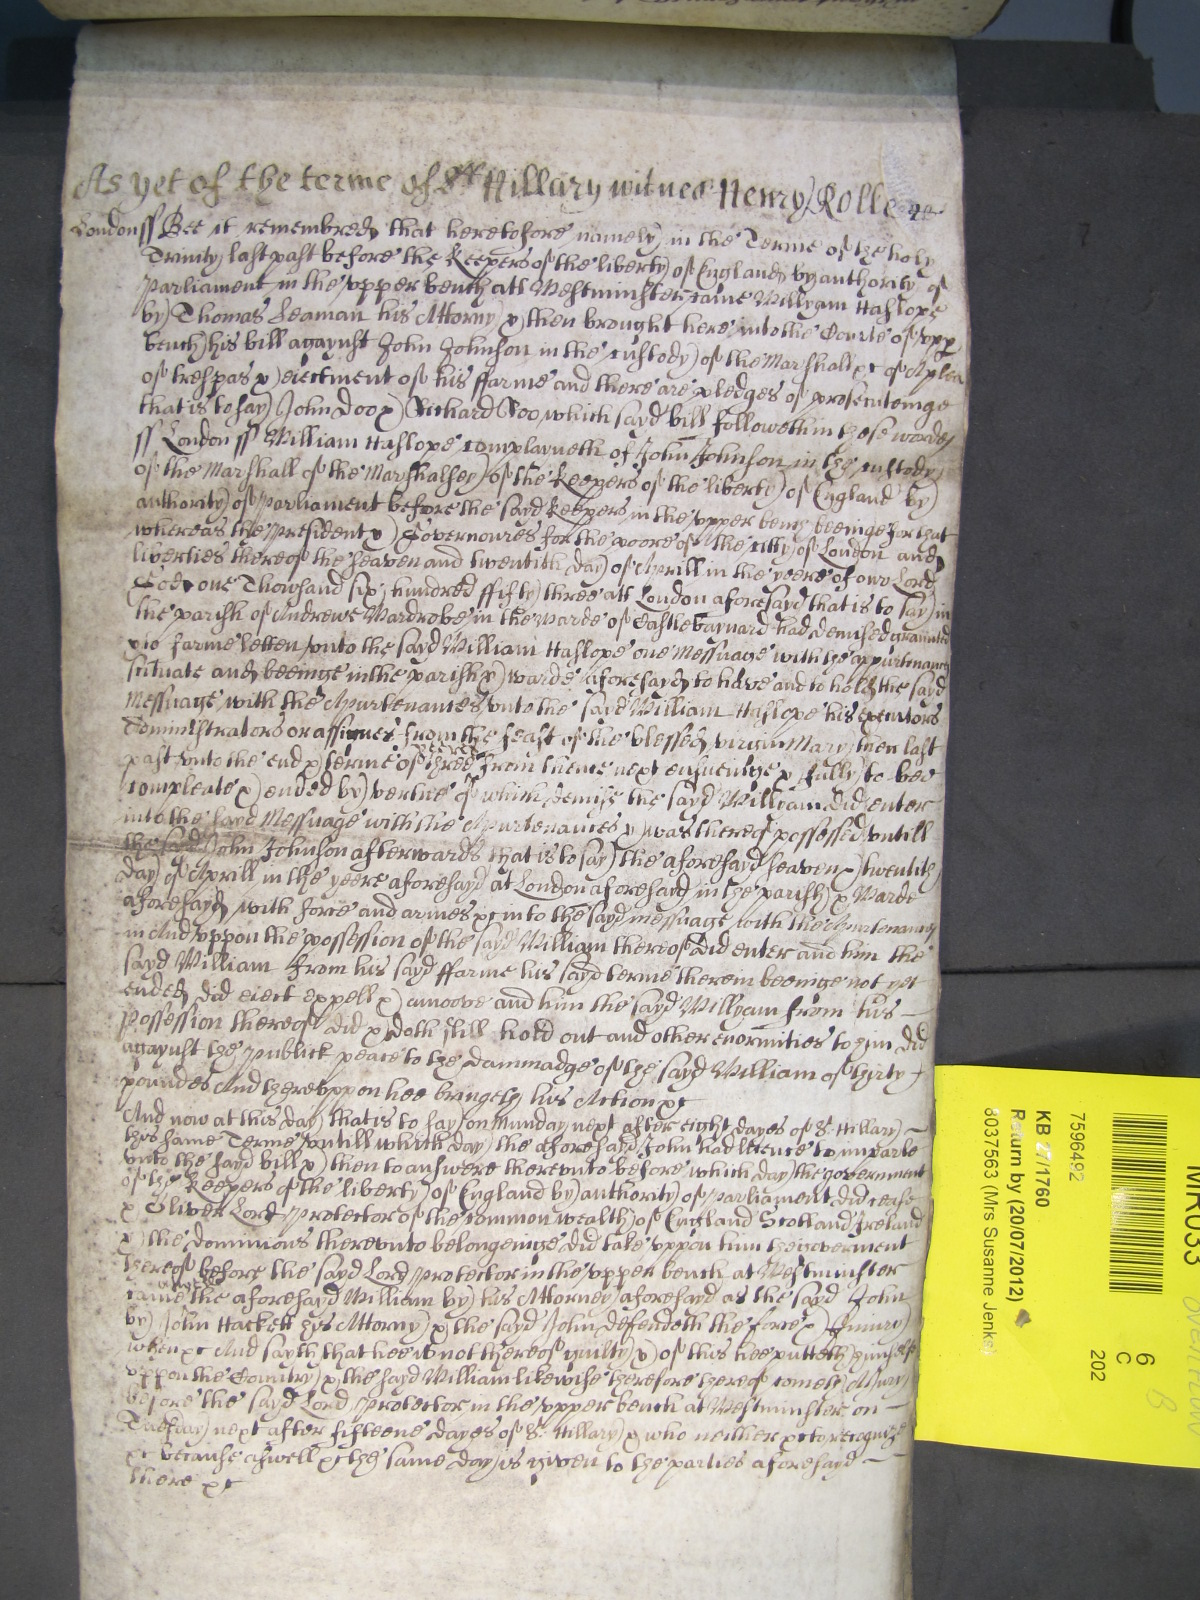 As yet of the terme of St Hillary witnes Henry Rolle
London ss Bee it remembred that heretofore namely in the Terme of the holy
Trinity last past before the Keepers of the liberty of England by authority of
Parliament in the upper bench att Westminster came Willyam Haslope
by Thomas Leaman his Attorny & then brought here into the Courte of upper
bench his bill agaynst John Johnson in the custody of the Marshall &c of A plea
of trespas & eiectment of his ffarme and there are pledges of prosecuteinge
that is to say John Doo & Richard Roo which sayd bill followeth in these wordes
ss London ss William Haslope complayneth of John Johnson in the custody
of the Marshall of the Marshalsey of the Keepers of the liberty of England by
authority of Parliament before the sayd Keepers in the upper bench beeinge for that
whereas the President & Governoures for the poore of the citty of London and
liverties thereof the seaven and twentith day of Aprill in the yeere of our Lord
God one Thowsand six hundred ffifty three att London aforesayd that is to say in
the parish of Andrewe Wardrobe in the warde of Castle baynard had demised graunted
& to farme letten unto the sayd William Haslope one Messuage with the appurtenances
scituate and beeinge in the parish & warde aforesayd to have and to hold the sayd
Messuage with the Apurtenances unto the sayd William Haslope his executors
Administrators or assignes from the feast of the blessed virgin Mary then last
past unto the end & terme of three yeeres from thence next ensueinge & fully to bee
compleate & ended by vertue of which demise the sayd Willyam did enter
into the sayd Messuage with the Apurtenances & was thereof possessed untill
the sayd John Johnson afterwards that is to say the aforesayd seaven & twentith
day of Aprill in the yeere aforesayd at London aforesayd in the parish & Warde
aforesayd with force and armes &c into the sayd messuage with the Apurtenances
in And uppon the possession of the sayd William thereof did enter and him the
sayd William from his sayd ffarme his sayd terme therein beeinge not yet
ended did eiect expell & amoove and him the sayd Willyam from his
possession thereof did & doth still hold out and other enormities to him did
agaynst the publick peace to the dammadge of the sayd William of thirty
poundes And thereuppon hee bringeth his Action &c
And now at this day that is to say on Munday next after eight dayes of St Hillary
this same Terme untill which day the aforesayd John had licence to imparle
unto the sayd bill & then to answere thereunto before which day the government
of the Keepers of the liberty of England by authority of Parliament did cease
& Oliver Lord Protector of the common wealth of England Scotland Ireland
& the dominions thereunto belongeinge did take uppon him the goverment
thereof before the sayd Lord Protector in the upper bench at Westminster
came the aforesayd William by his Attorney aforesayd as the sayd John
by John Hackett his Attorny & the sayd John defendeth the force & Iniury
when &c And sayth that hee is not thereof guilty & of this hee putteth himselfe
uppon the Country & the sayd William likewise therefore thereof come a Jury
before the sayd Lord Protector in the upper bench at Westminster on
Tuesday next after fifteene dayes of St Hillary & who neither &c to recognize
&c because aswell &c the same day is given to the parties aforesayd
there &c
7596492
KB 27/1760
Return by (20/07/2012)
8037563 (Mrs Susanne Jenke
MR033
6
C
202